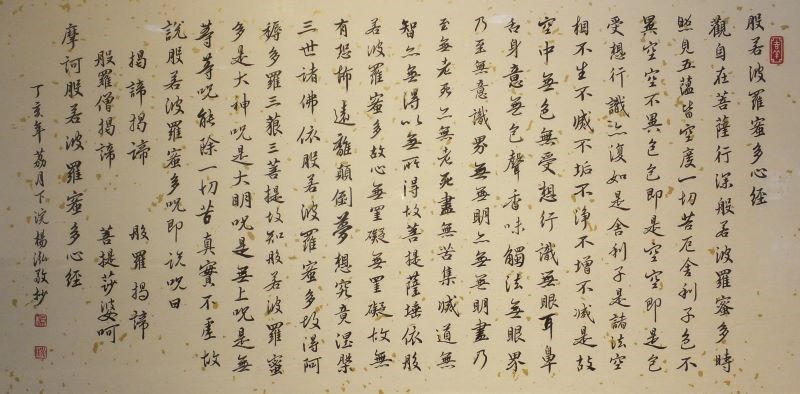 般若波羅蜜多心經
觀自在菩薩行深般若波羅蜜多時
照見五蘊皆空度一切苦厄舍利子色不
異空空不異色色即是空空即是色
受想行識亦復如是舍利子是諸法空
相不生不滅不垢不淨不增不減是故
空中無色無受想行識無眼耳鼻
舌身意無色聲香味觸法無眼界
乃至無意識界無無明亦無無明盡乃
至無老死亦無老死盡無苦集滅道無
智亦無得以無所得故菩提薩埵依般
若波羅蜜多故心無罣礙無罣礙故無
有恐怖遠離顛倒夢想究竟涅槃
三世諸佛依般若波羅蜜多故得阿
耨多羅三藐三菩提故知般若波羅蜜
多是大神呪是大明呪是無上呪是無
等等呪能除一切苦真實不虛故
說般若波羅蜜多呪即說呪曰
揭諦揭諦 般羅揭諦
般羅僧揭諦 菩提莎婆呵
摩訶般若波羅蜜多心經
丁亥年荔月下浣楊泓敬抄